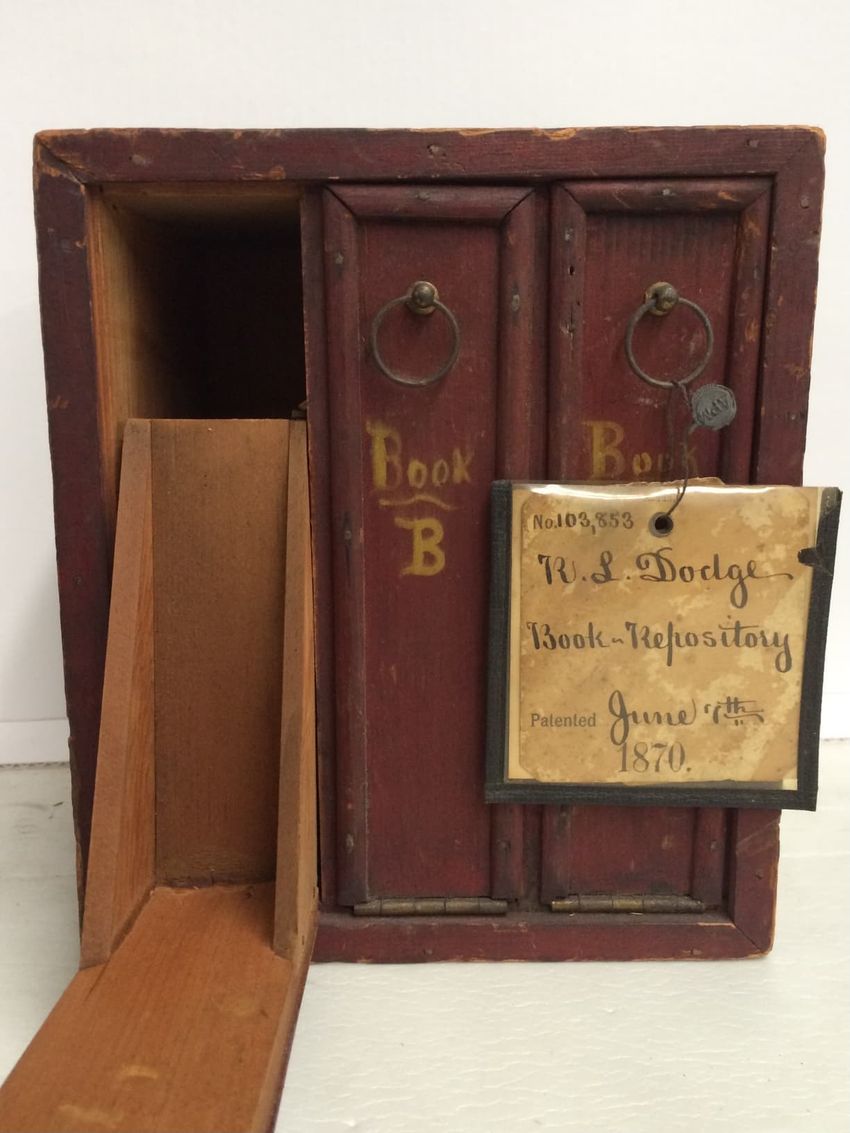 Book
B
Book
APM
No. 103,853
R. L. Dodge
Book-Repository
Patented June 7th
1870.